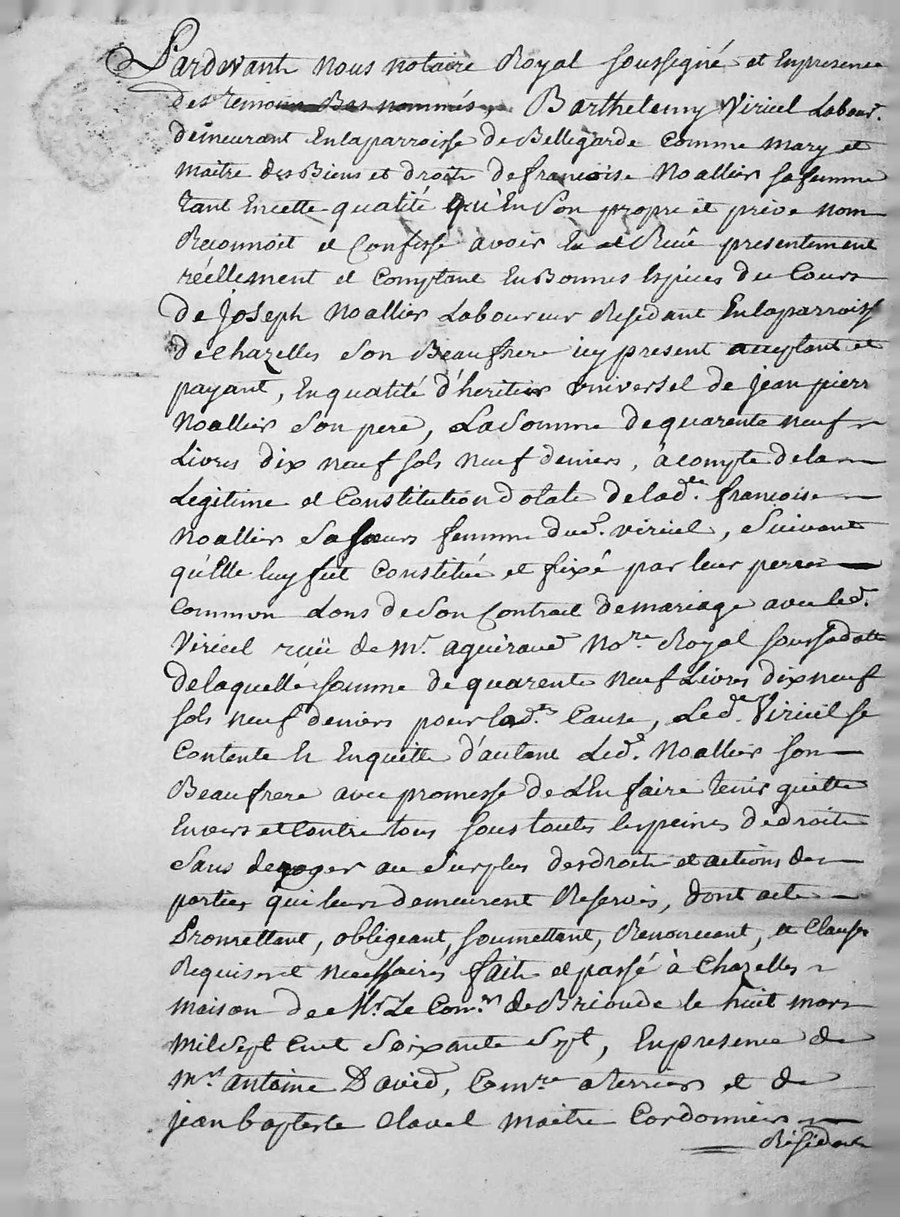 Pardevant nous notaire Royal soussigné et Enpresence
des temoins Bas nommés, Barthelemy Viricel Labour.
demeurant Enlaparroisse de Bellegarde comme mary et
maitre des Biens et droits defrancoise Noallier safemme
tant Encette qualité qu'En son propre et privé nom
Reconnoit et Confesse avoir Eu et Receu presentement
réellement et Comptant EnBonnes Especes du Cours
de Joseph Noallier Laboureur Residant Enlaparroisse
de chazelles son Beaufrere icy present acceptant et
payant, Enqualité d'heritier universel de jean pierre
Noallier son pere, LaSomme dequarente neuf
Livres dix neuf sols neuf deniers, àcompte dela
Legitime et Constitution dotale delade. francoise
Noallier Sasœur femme dud. viricel, Suivant
qu'Elle luy fut Constituée et fixé par leur pere
Common Lors deson Contrat demariage avec led.
Viricel reçu de Mr. aguiraud Nore. Royal soussadatte
delaquelle somme de quarente neuf Livres dixneuf
sols neuf deniers pour lade. Cause, Led. Viricel se
Contente et Enquitte d'autant Led. Noallier son
Beaufrere avec promesse deL'En faire tenir quitte
Envers et Contre tous sous toutes lespeines dedroits
Sans deroger au Surplus desdroits et actions des
parties qui leurs demeurent Reservés, dont acte
Promettant, obligeant, soumettant, Renonceant, et Clauses
Requises et necessaires fait et passé à Chazelles
maison de Mr. Le Comr. de Brioude le huit mars
milsept Cent Soixante Sept, Enpresence de
Mre. antoine David, Comre. aterriers et de
jean baptiste Clavel maitre Cordonnier
Résidants